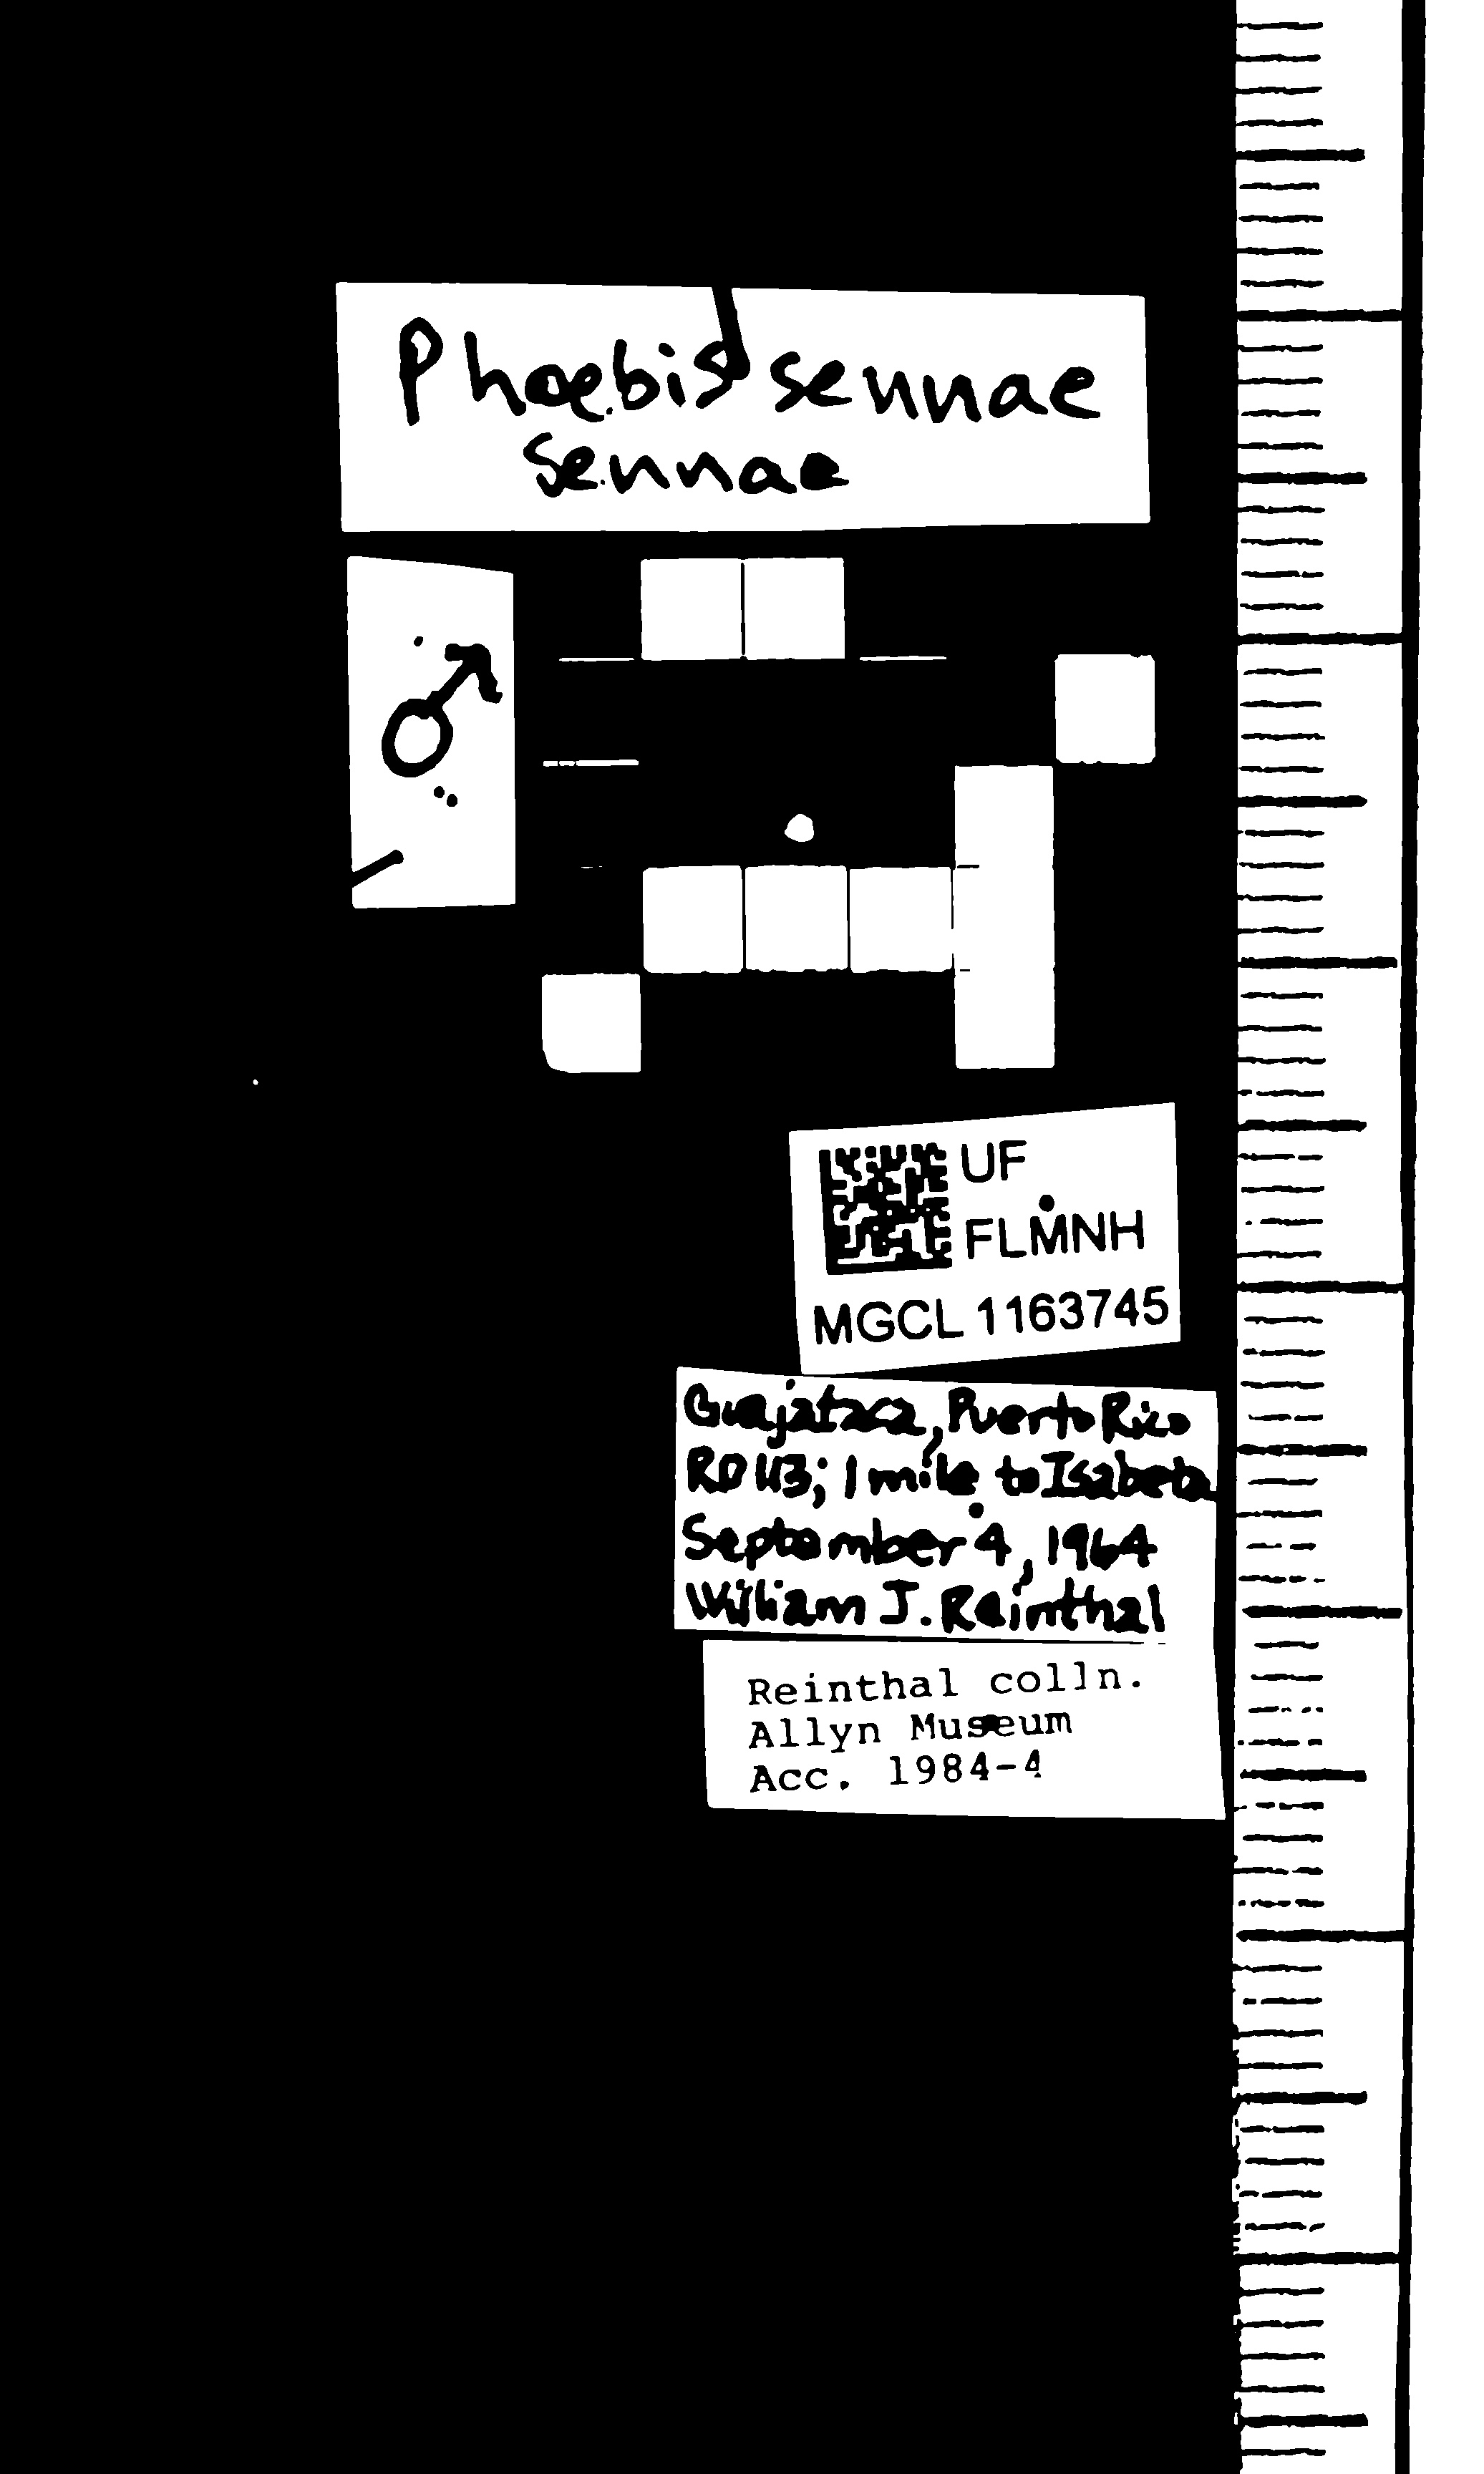 Phoebis sennae
sennae
♂
UF
FLMNH
MGCL 1163745
Guajataca, Puerto Rico
RD 113; 1 mile to Isabela
September 4, 1964
William J. Reinthal
Reinthal colln.
Allyn Museum
Acc. 1984-4